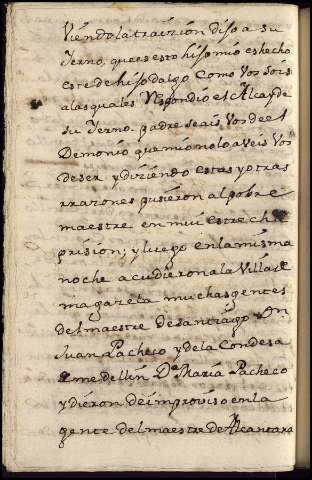 Viendo la traizion dijo a su
Yerno, que es esto hijo mio es hecho
este de hijo dalgo como Vos sois
alas quales Respondio el Alcayde
su Yerno. padre seais Vos de el
Demonio que mio no lo aveis Vos
de ser, y diziendo estas y otras
rrazones pusieron al pobre
maestre en mui estrecha
prision; y luego en la misma
noche acudieron a la Villa de
magazela muchas gentes
del maestre de santiago Dn
Juan Pacheco y de la Condesa
de medellin Da Maria Pacheco
y dieron de improviso en la
gente del maestre de Alcantara